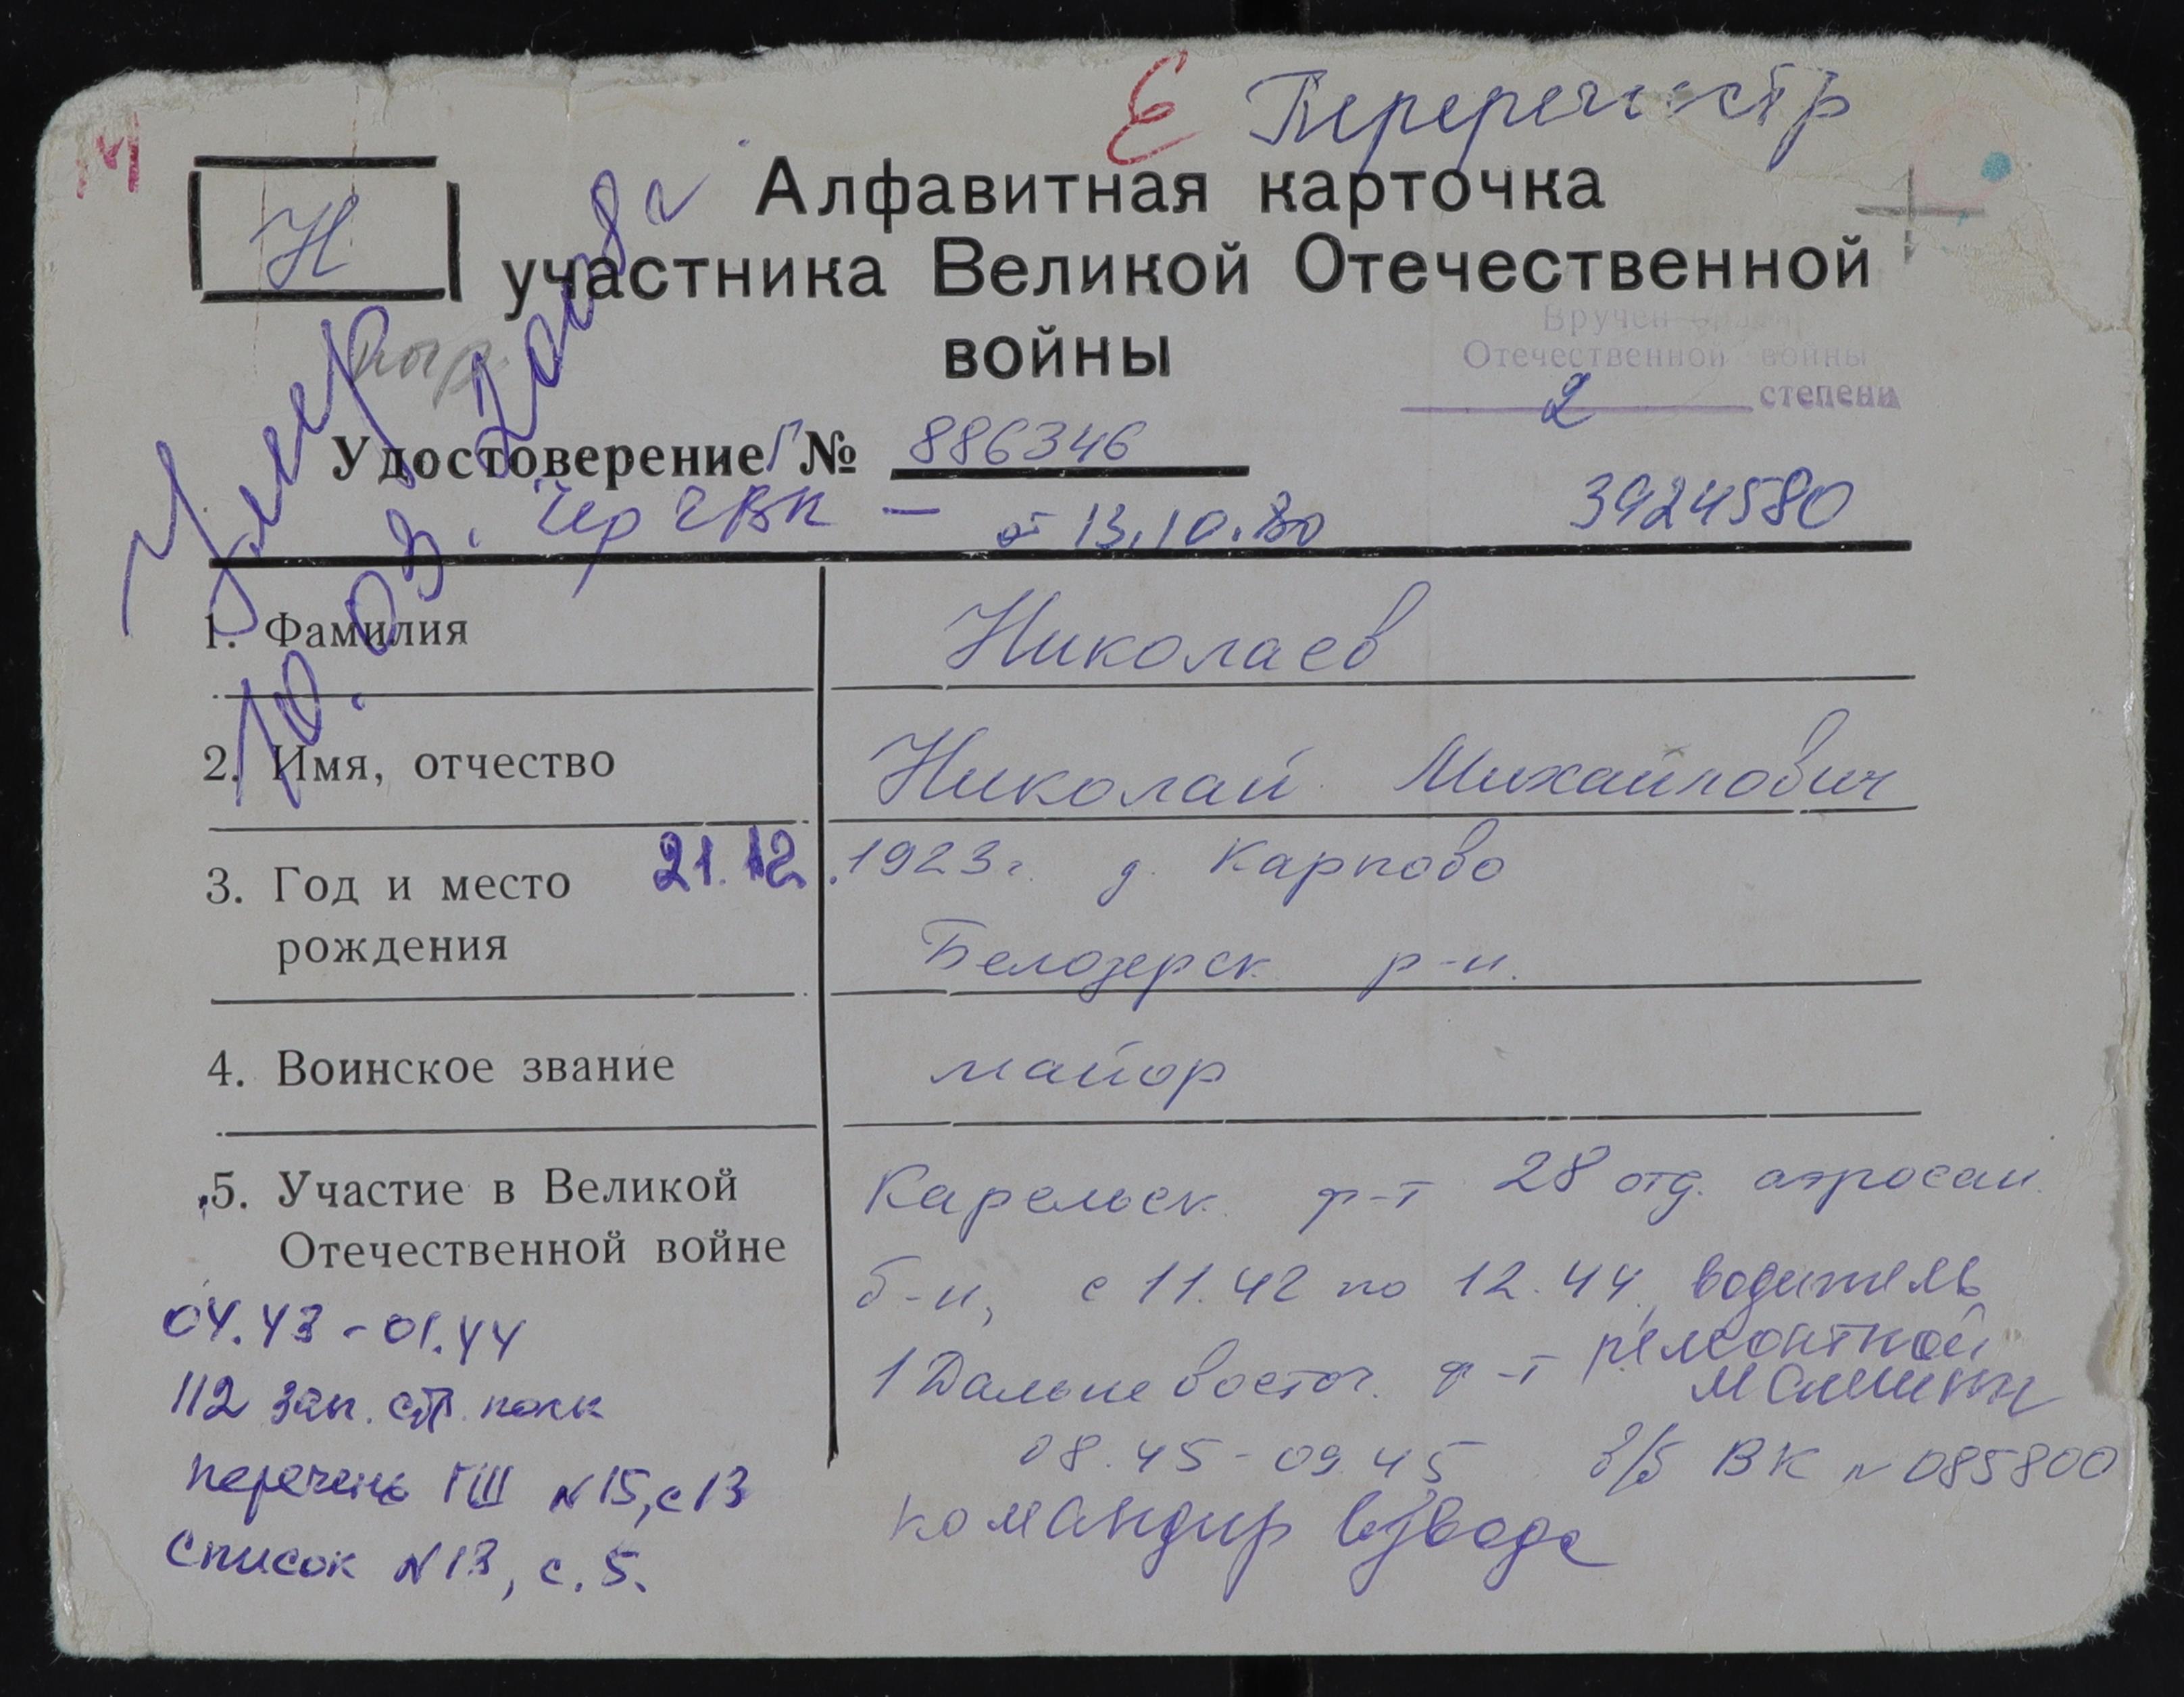 М
Е Перерегистр
Н
Алфавитная карточка
участника Великой Отечественной
войны
Вручен
Отечественной войны
2 степени
Умер
10.03. 2008г
Удостоверение Г №
886346
Чер ГВК – от 13.10.80
3924580
1. Фамилия
Николаев
2. Имя, отчество
Николай Михайлович
3. Год и место
рождения
21.12.1923г. д. Карпово
Белозерск р-н.
4. Воинское звание
майор
5. Участие в Великой
Отечественной войне
Карельск. ф-т 28 отд. аэросан.
б-н, с 11.42 по 12.44, водитель
ремонтной
машины
1 Дальневосточ. ф-т
08.45-09.45 в/б ВК № 085800
командир взвода
04.43 - 01.44
112 зап. стр. полк
перечень ГШ №15, с13
Список №13, с. 5.